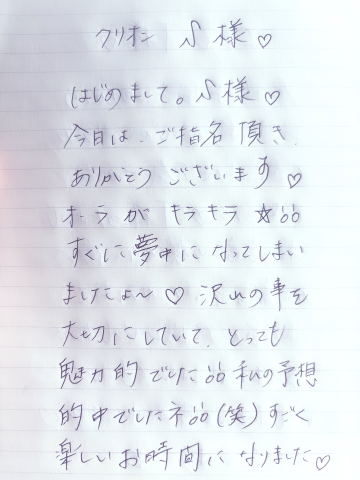 クリオネ ♪様♡
はじめまして。♪様♡
今日は、ご指名頂き、
ありがとうございます♡
オーラがキラキラ☆
すぐに夢中になってしまい
ましたよ〜♡ 沢山の事を
大切にしていて、とっても
魅力的でした 私の予想
的中でしたネ(笑)すごく
楽しいお時間になりました♡